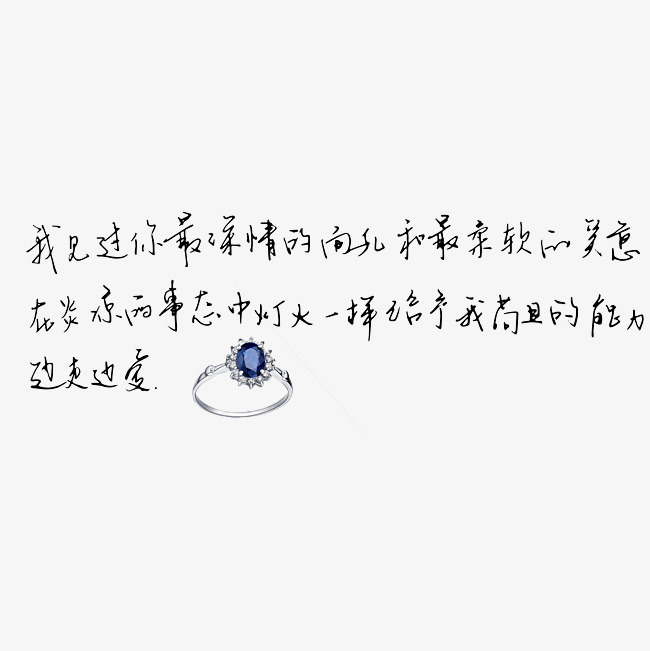 我见过你最深情的面孔和最柔软的笑意
在炎凉的世态中灯火一样给予我苟且的能力
边走边爱.